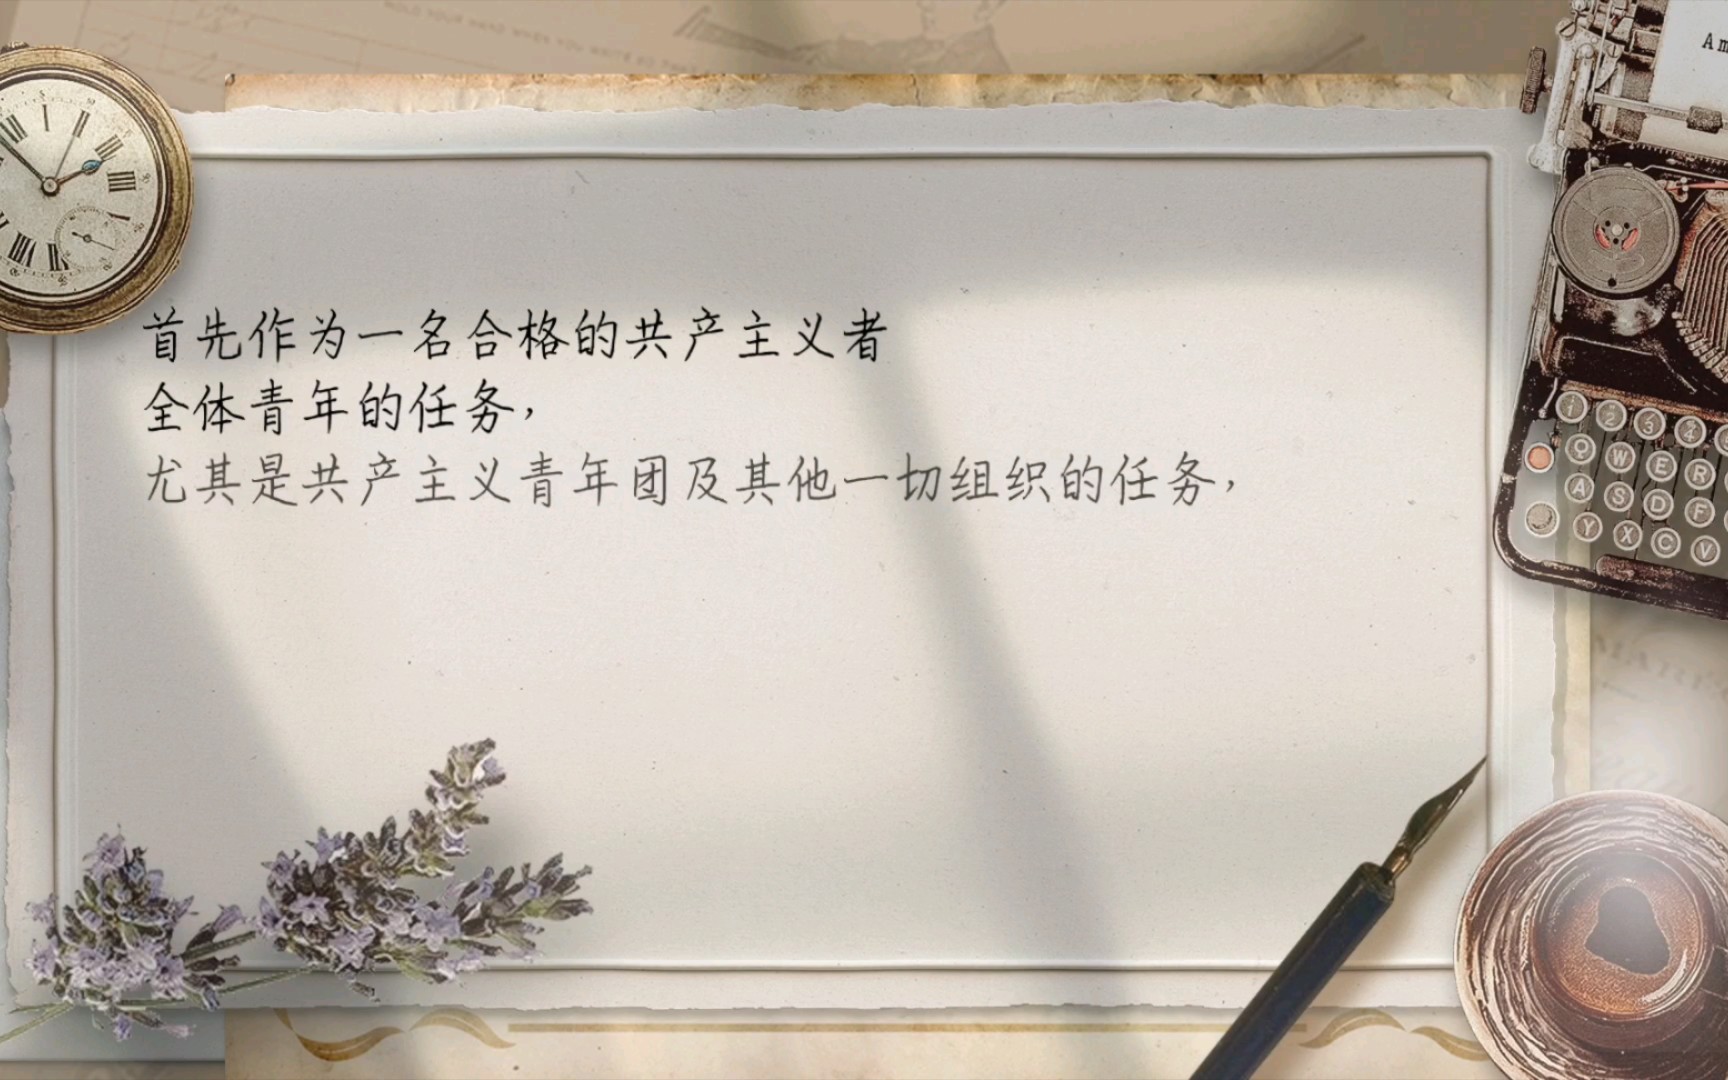 首先作为一名合格的共产主义者
全体青年的任务，
尤其是共产主义青年团及其他一切组织的任务，